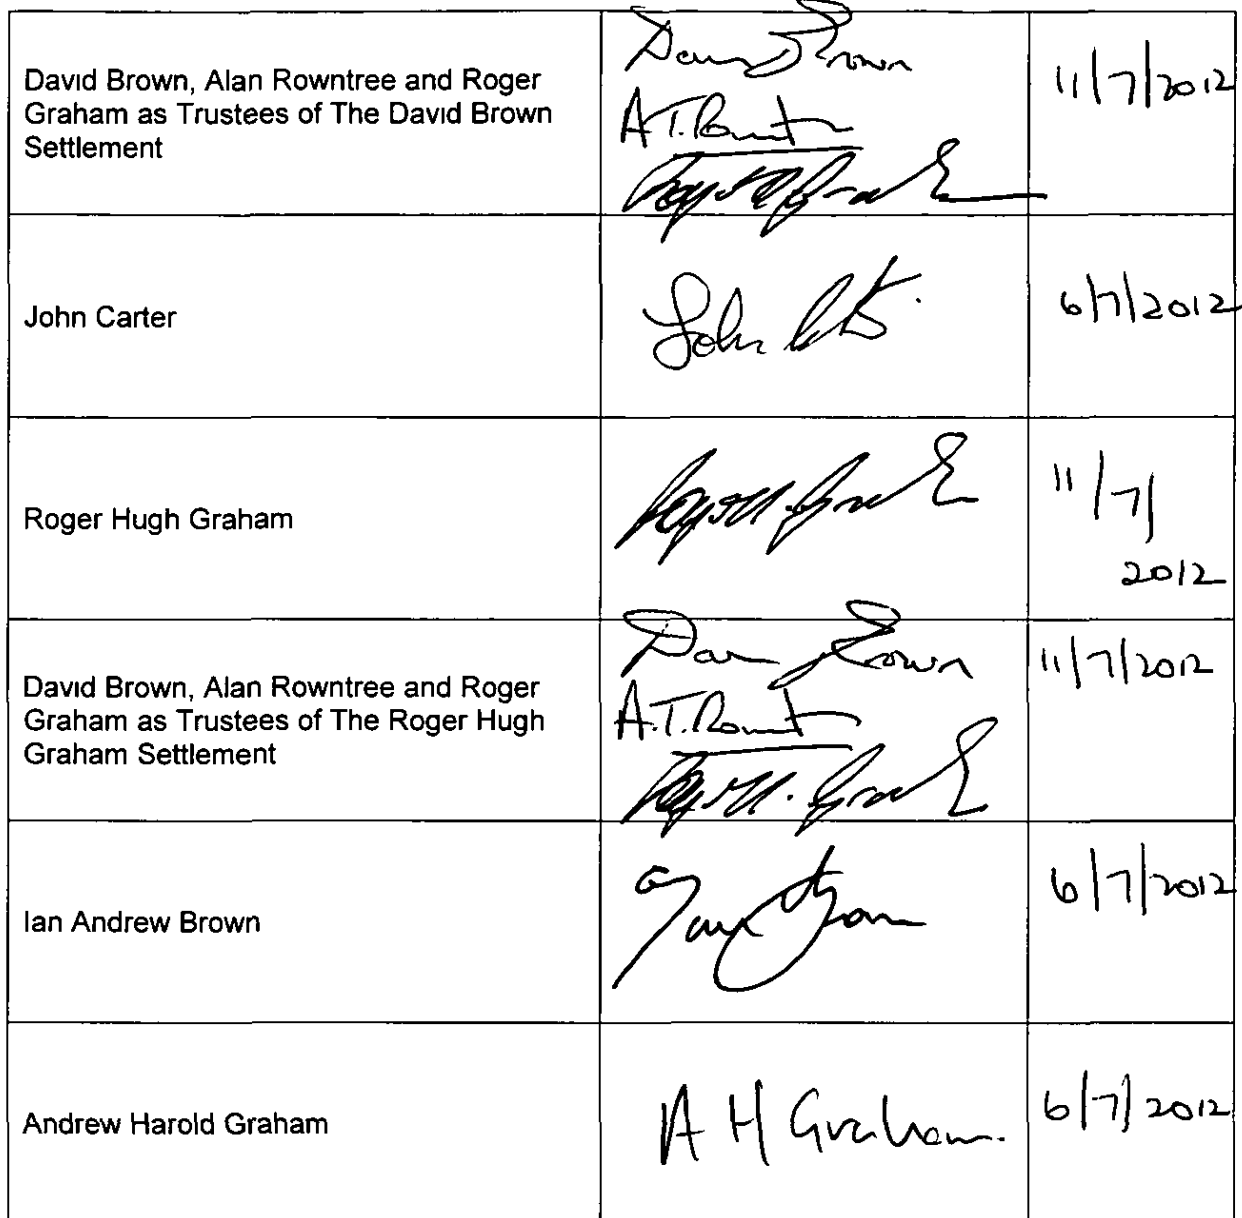 David Brown, Alan Rowntree and Roger
Graham as Trustees of The David Brown
Settlement
David Brown
A.T. Rowntree
11/7/2012
John Carter
John
6/7/2012
Roger Hugh Graham
11/7/
2012
David Brown, Alan Rowntree and Roger
Graham as Trustees of The Roger Hugh
Graham Settlement
David Brown
A.T. Rowntree
11/7/2012
Ian Andrew Brown
6/7/2012
Andrew Harold Graham
A H Graham.
6/7/2012